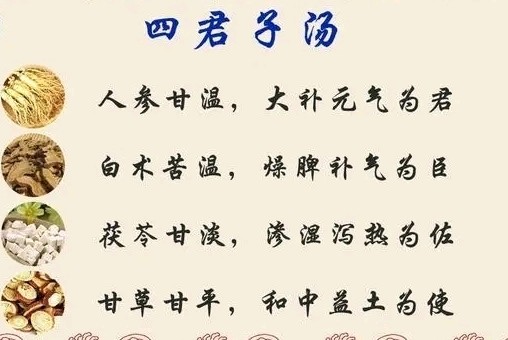 四君子汤
人参甘温，大补元气为君
白术苦温，燥脾补气为臣
茯苓甘淡，渗湿泻热为佐
甘草甘平，和中益土为使